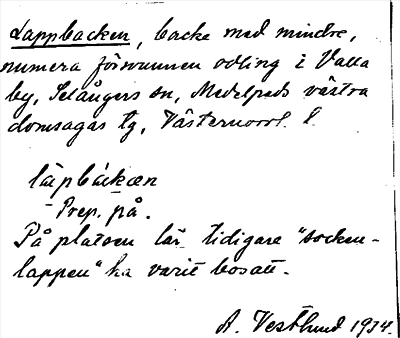 Lappbacken, backe med mindre,
numera försvunnen odling i Valla
by, Selångers sn, Medelpads västra
domsagas tg, Västernorrl. l.
lápbàkæn
Prep. på.
På platsen lär tidigare "socken-
lappen" ha varit bosatt.
A. Vestlund 1934.